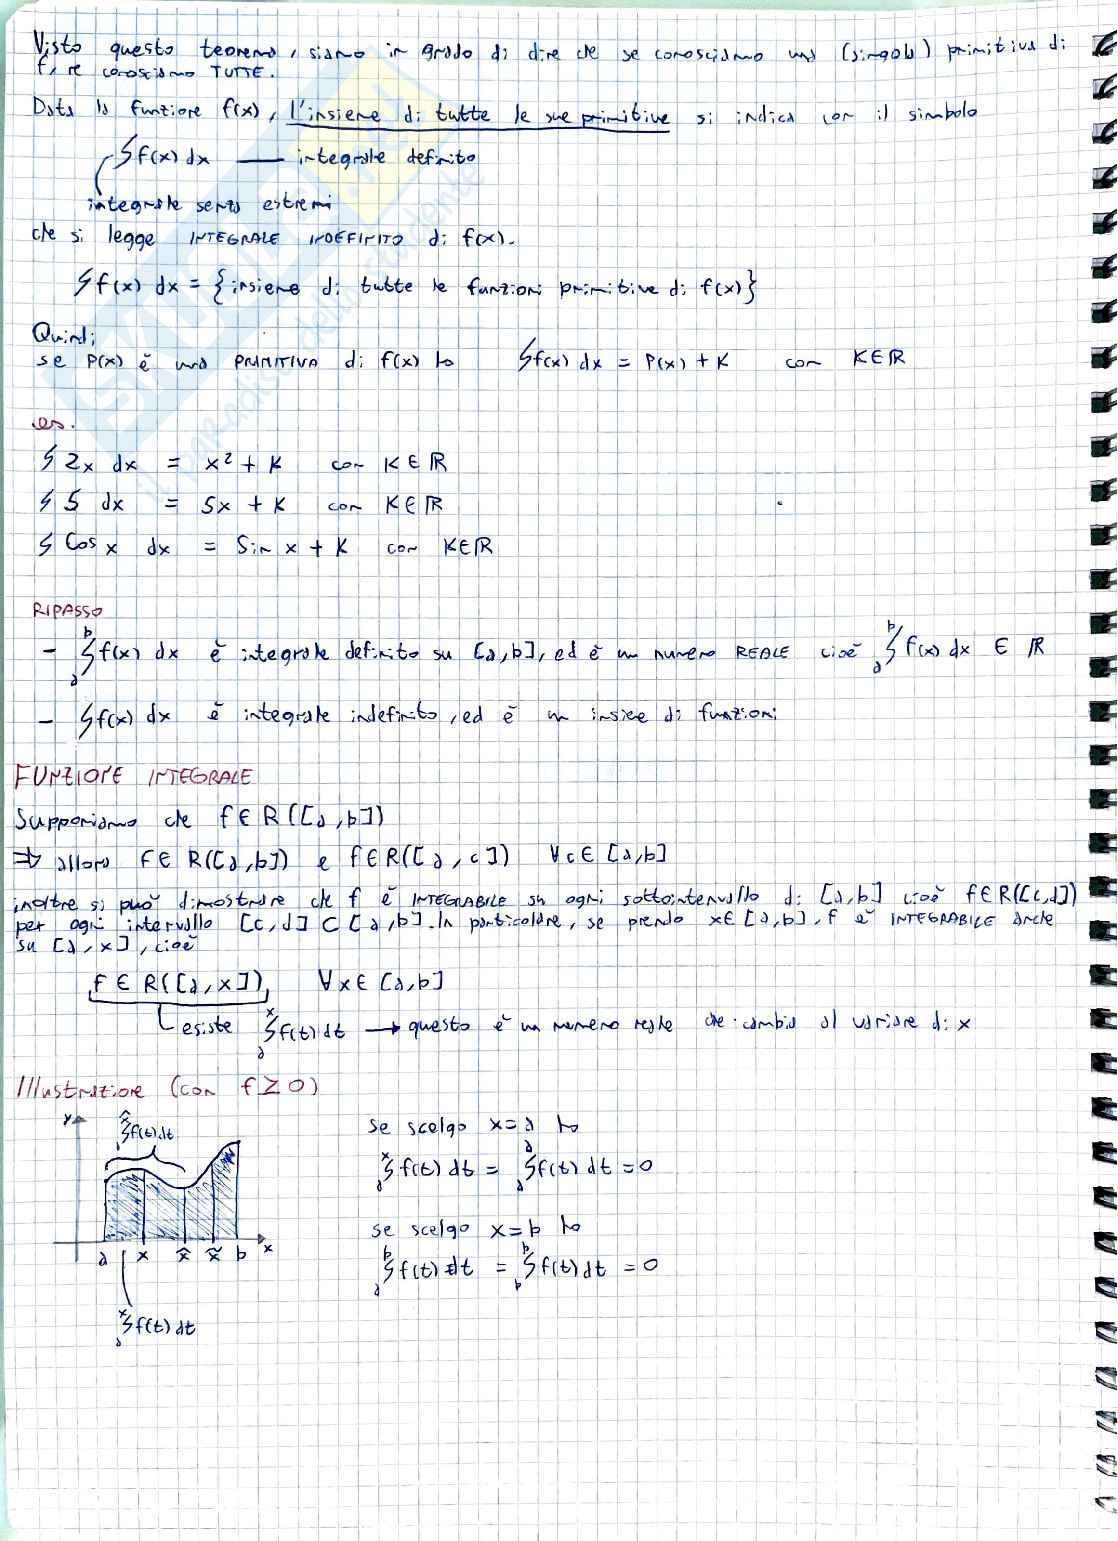 Visto questo teorema, siamo in grado di dire che se conosciamo una (singola) primitiva di
f, ne conosciamo TUTTE.
Data la funzione f(x), l'insieme di tutte le sue primitive si indica con il simbolo
∫f(x) dx — integrale definito
integrale senza estremi
che si legge INTEGRALE INDEFINITO di f(x).
∫f(x) dx = {insieme di tutte le funzioni primitive di f(x)}
Quindi
se P(x) è una PRIMITIVA di f(x) ho ∫f(x) dx = P(x) + K con K∈ℝ
es.
∫ 2x dx = x² + K con K∈ℝ
∫ 5 dx = 5x + K con K∈ℝ
∫ Cos x dx = Sin x + K con K∈ℝ
RIPASSO
- ∫ₐᵇ f(x) dx è integrale definito su [a,b], ed è un numero REALE cioè ∫ₐᵇ f(x) dx ∈ ℝ
- ∫f(x) dx è integrale indefinito, ed è un insiee di funzioni
FUNZIONE INTEGRALE
Supponiamo che f∈R([a,b])
⇒ allora f∈R([a,b]) e f∈R([a,c]) ∀c∈[a,b]
inoltre si può dimostrare che f è INTEGRABILE su ogni sottointervallo di [a,b] cioè f∈R([c,d])
per ogni intervallo [c,d]⊂[a,b]. In particolare, se prendo x∈[a,b], f è INTEGRABILE anche
su [a,x], cioè
f∈R([a,x]), ∀x∈[a,b]
esiste ∫ₐˣ f(t) dt → questo è un numero reale che cambia al variare di x
Illustrazione (con f≥0)
y
∫ₐ^x̂ f(t) dt
a x x̂ x̃ b x
∫ₐˣ f(t) dt
se scelgo x=a ho
∫ₐˣ f(t) dt = ∫ₐᵃ f(t) dt = 0
se scelgo x=b ho
∫ₐᵇ f(t) dt = ∫_b^b f(t) dt = 0